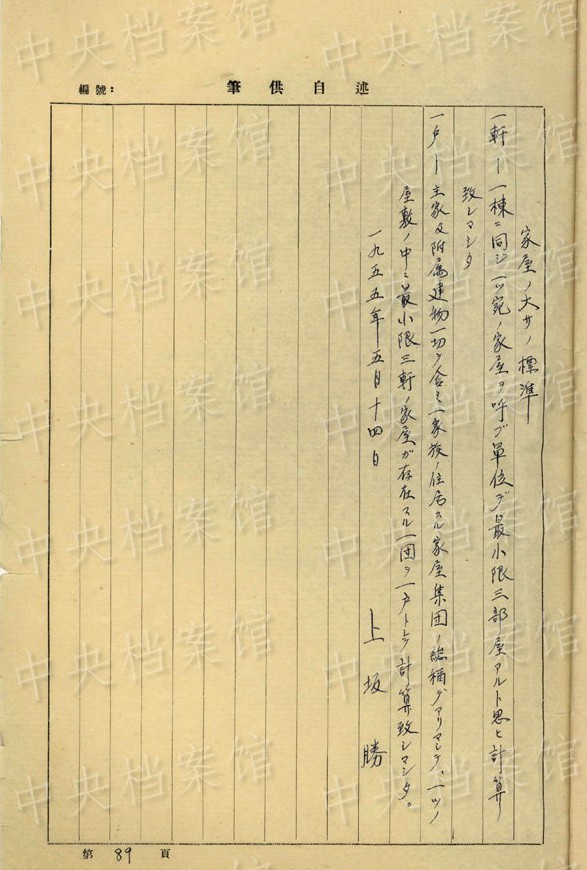 編號：
自述供筆
家屋ノ大サノ標準
一軒ー一棟ニ同ジ一ツ宛ノ家屋ヲ呼ブ單位デ最小限三部屋アルト思ヒ計算
致シマシタ
一戸ー主家及附屬建物一切ヲ含ミ一家族ノ住居スル家屋集団ノ総稱デアリマシテ、一ツノ
屋敷ノ中ニ最小限三軒ノ家屋ガ存在スル一団ヲ一戸トシテ計算致シマシタ。
一九五五年五月十四日
上坂勝
第89頁
中央档案馆